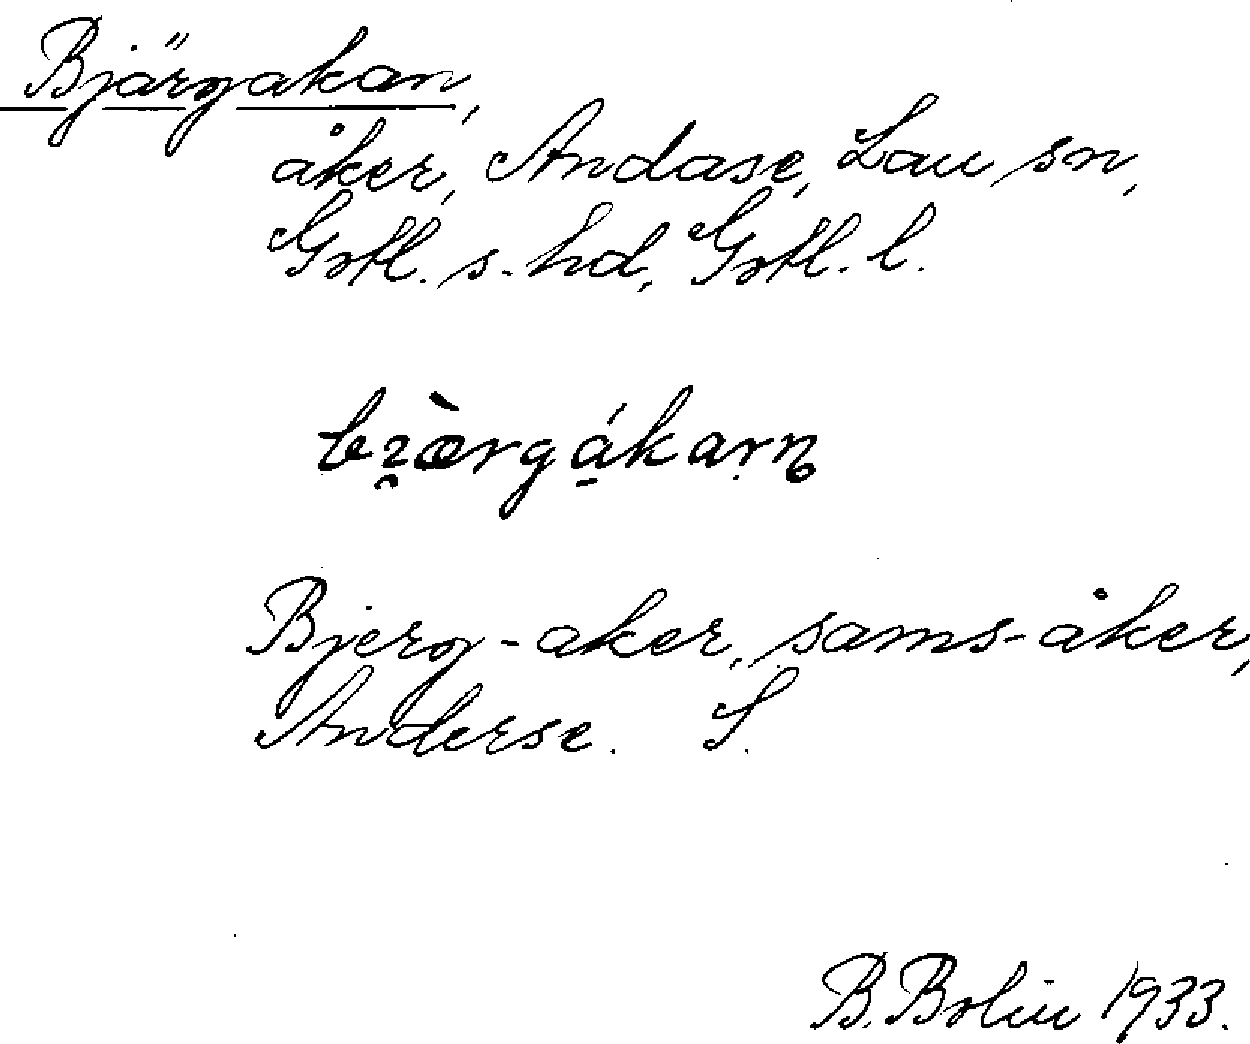 Bjärgakan,
åker, Andase, Lau sn,
Gotl. s. hd, Gotl. l.
Bjerg-aker, sams-åker,
Anderse. S.
B. Bolin 1933.